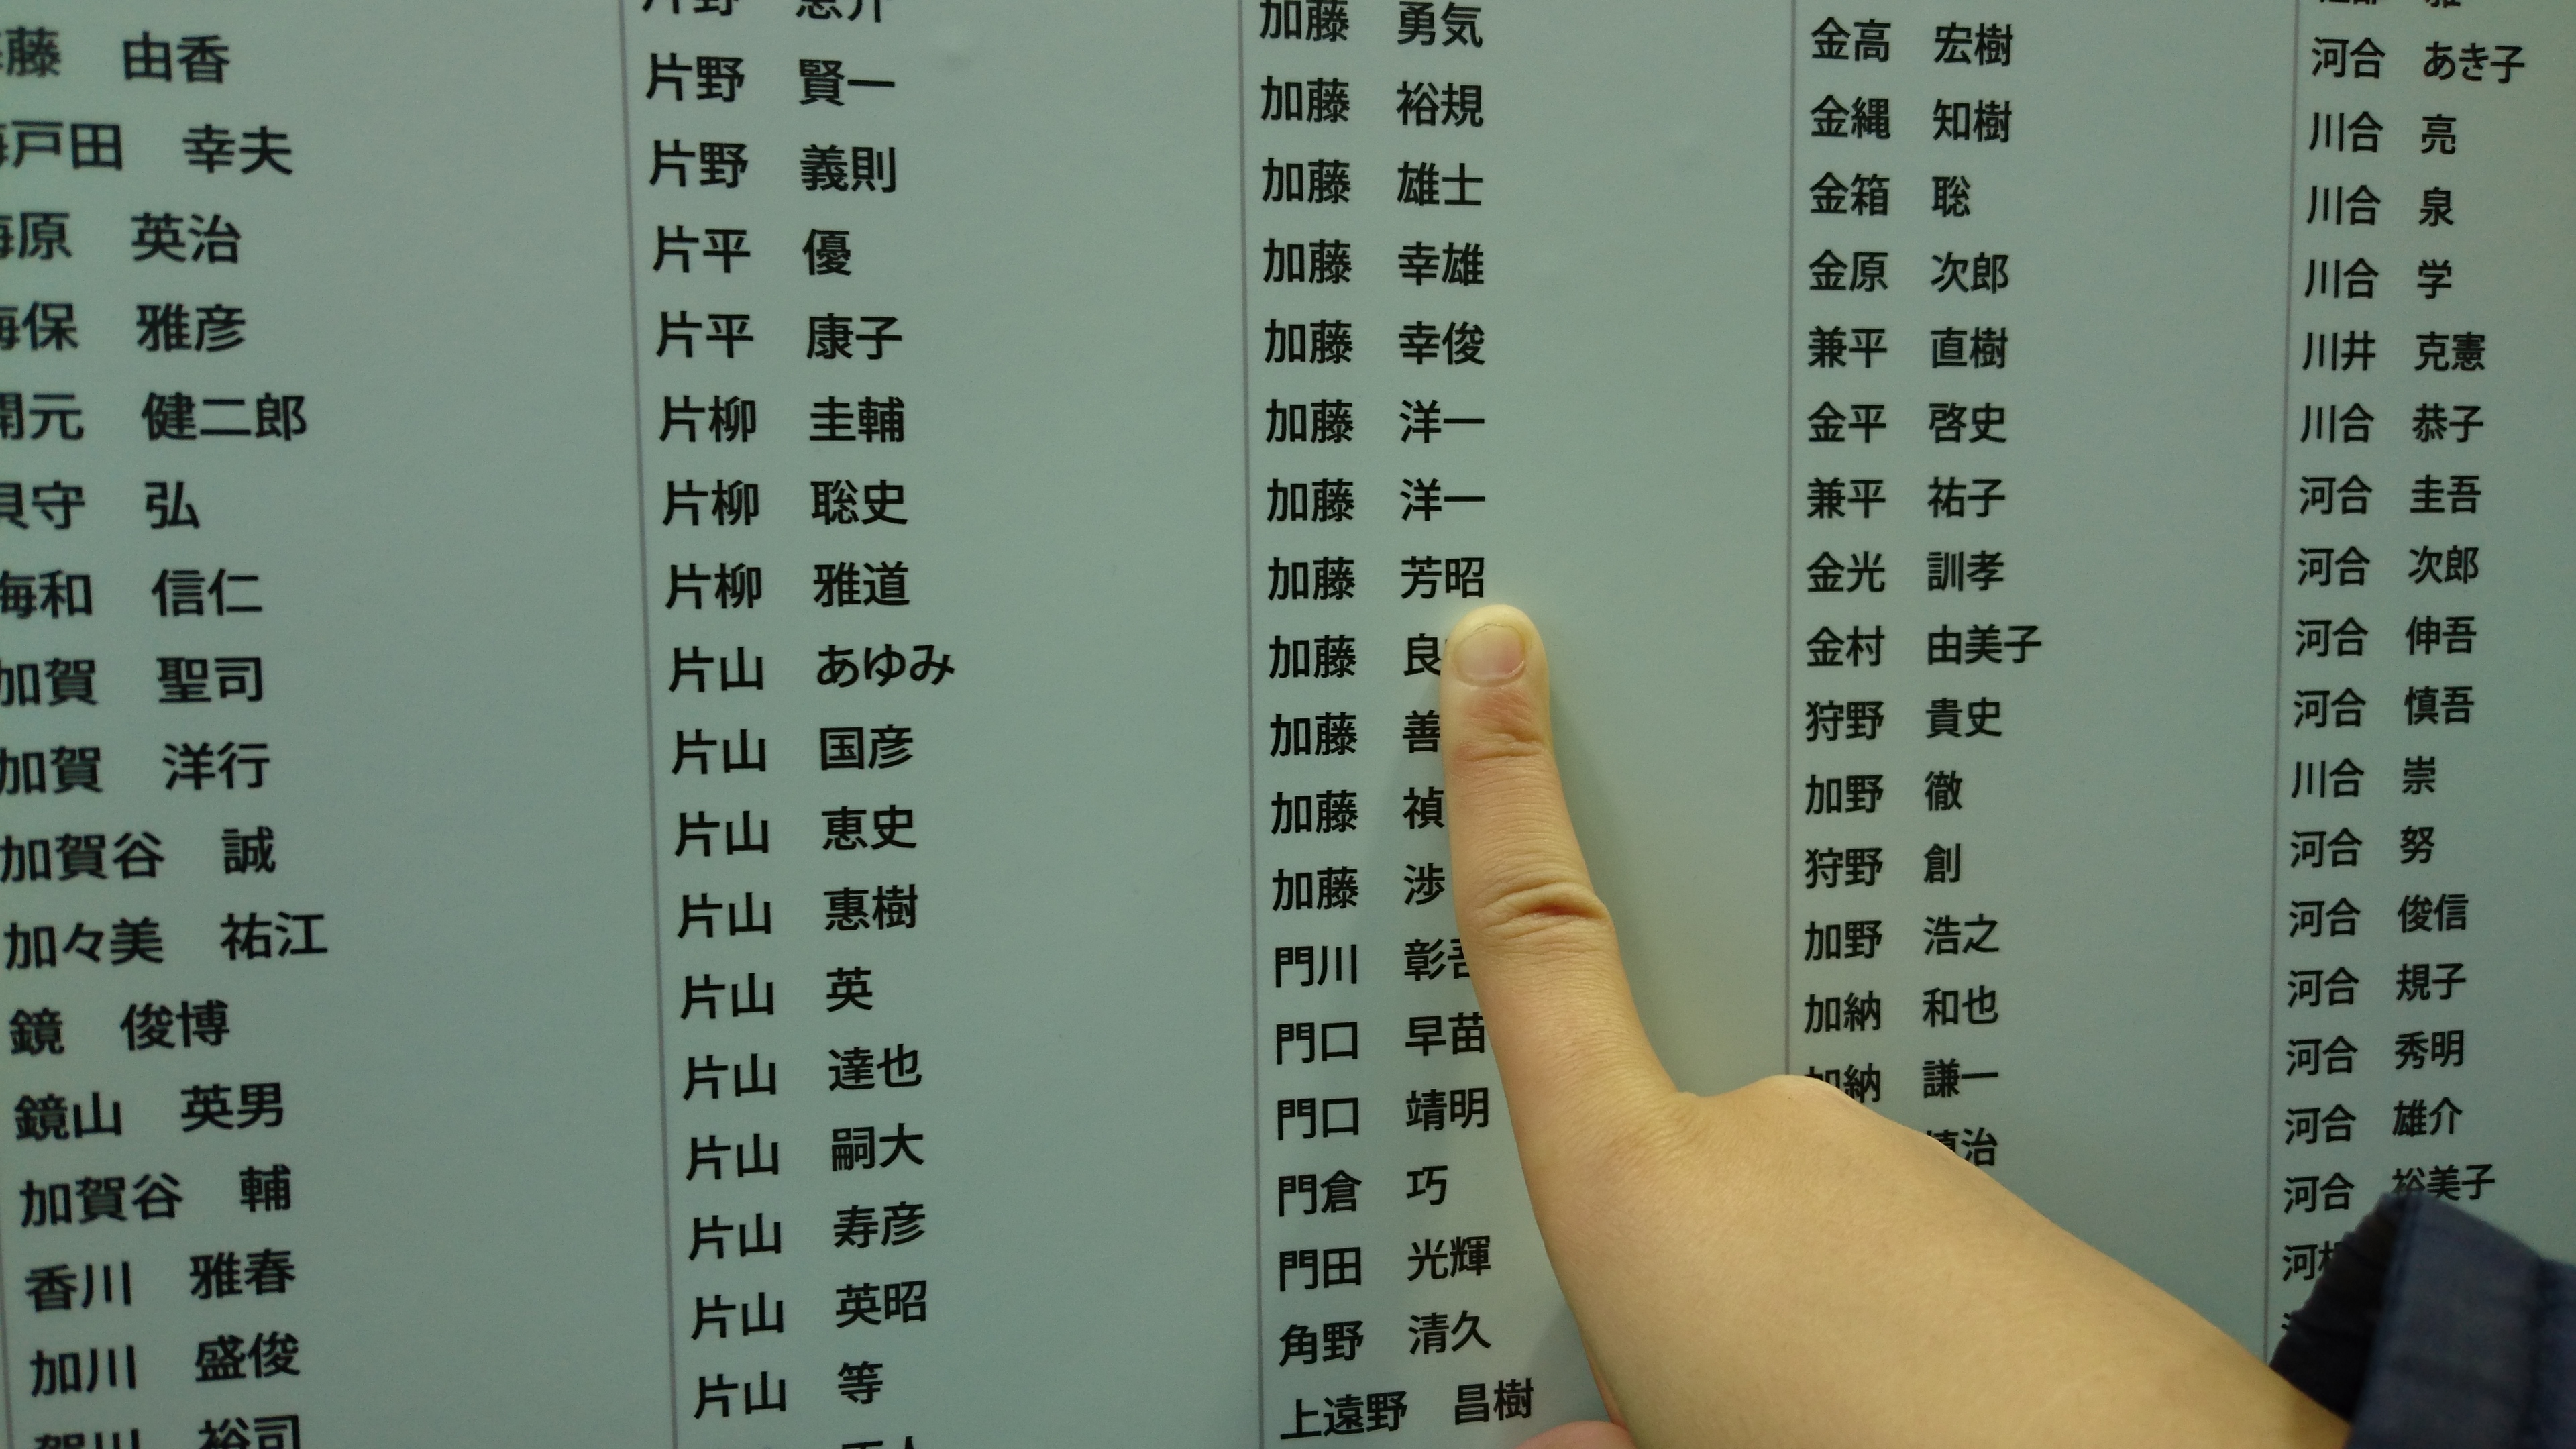 藤　由香
戸田　幸夫
原　英治
保　雅彦
開元　健二郎
貝守　弘
海和　信仁
加賀　聖司
加賀　洋行
加賀谷　誠
加々美　祐江
鏡　俊博
鏡山　英男
加賀谷　輔
香川　雅春
加川　盛俊
賀川　裕司
片野
片野　賢一
片野　義則
片平　優
片平　康子
片柳　圭輔
片柳　聡史
片柳　雅道
片山　あゆみ
片山　国彦
片山　恵史
片山　惠樹
片山　英
片山　達也
片山　嗣大
片山　寿彦
片山　英昭
片山　等
加藤　勇気
加藤　裕規
加藤　雄士
加藤　幸雄
加藤　幸俊
加藤　洋一
加藤　洋一
加藤　芳昭
加藤　良
加藤　善
加藤　禎
加藤　渉
門川　彰吾
門口　早苗
門口　靖明
門倉　巧
門田　光輝
角野　清久
上遠野　昌樹
金高　宏樹
金縄　知樹
金箱　聡
金原　次郎
兼平　直樹
金平　啓史
兼平　祐子
金光　訓孝
金村　由美子
狩野　貴史
加野　徹
狩野　創
加野　浩之
加納　和也
加納　謙一
治
河合　あき子
川合　亮
川合　泉
川合　学
川井　克憲
川合　恭子
河合　圭吾
河合　次郎
河合　伸吾
河合　慎吾
川合　崇
河合　努
河合　俊信
河合　規子
河合　秀明
河合　雄介
河合　裕美子
河